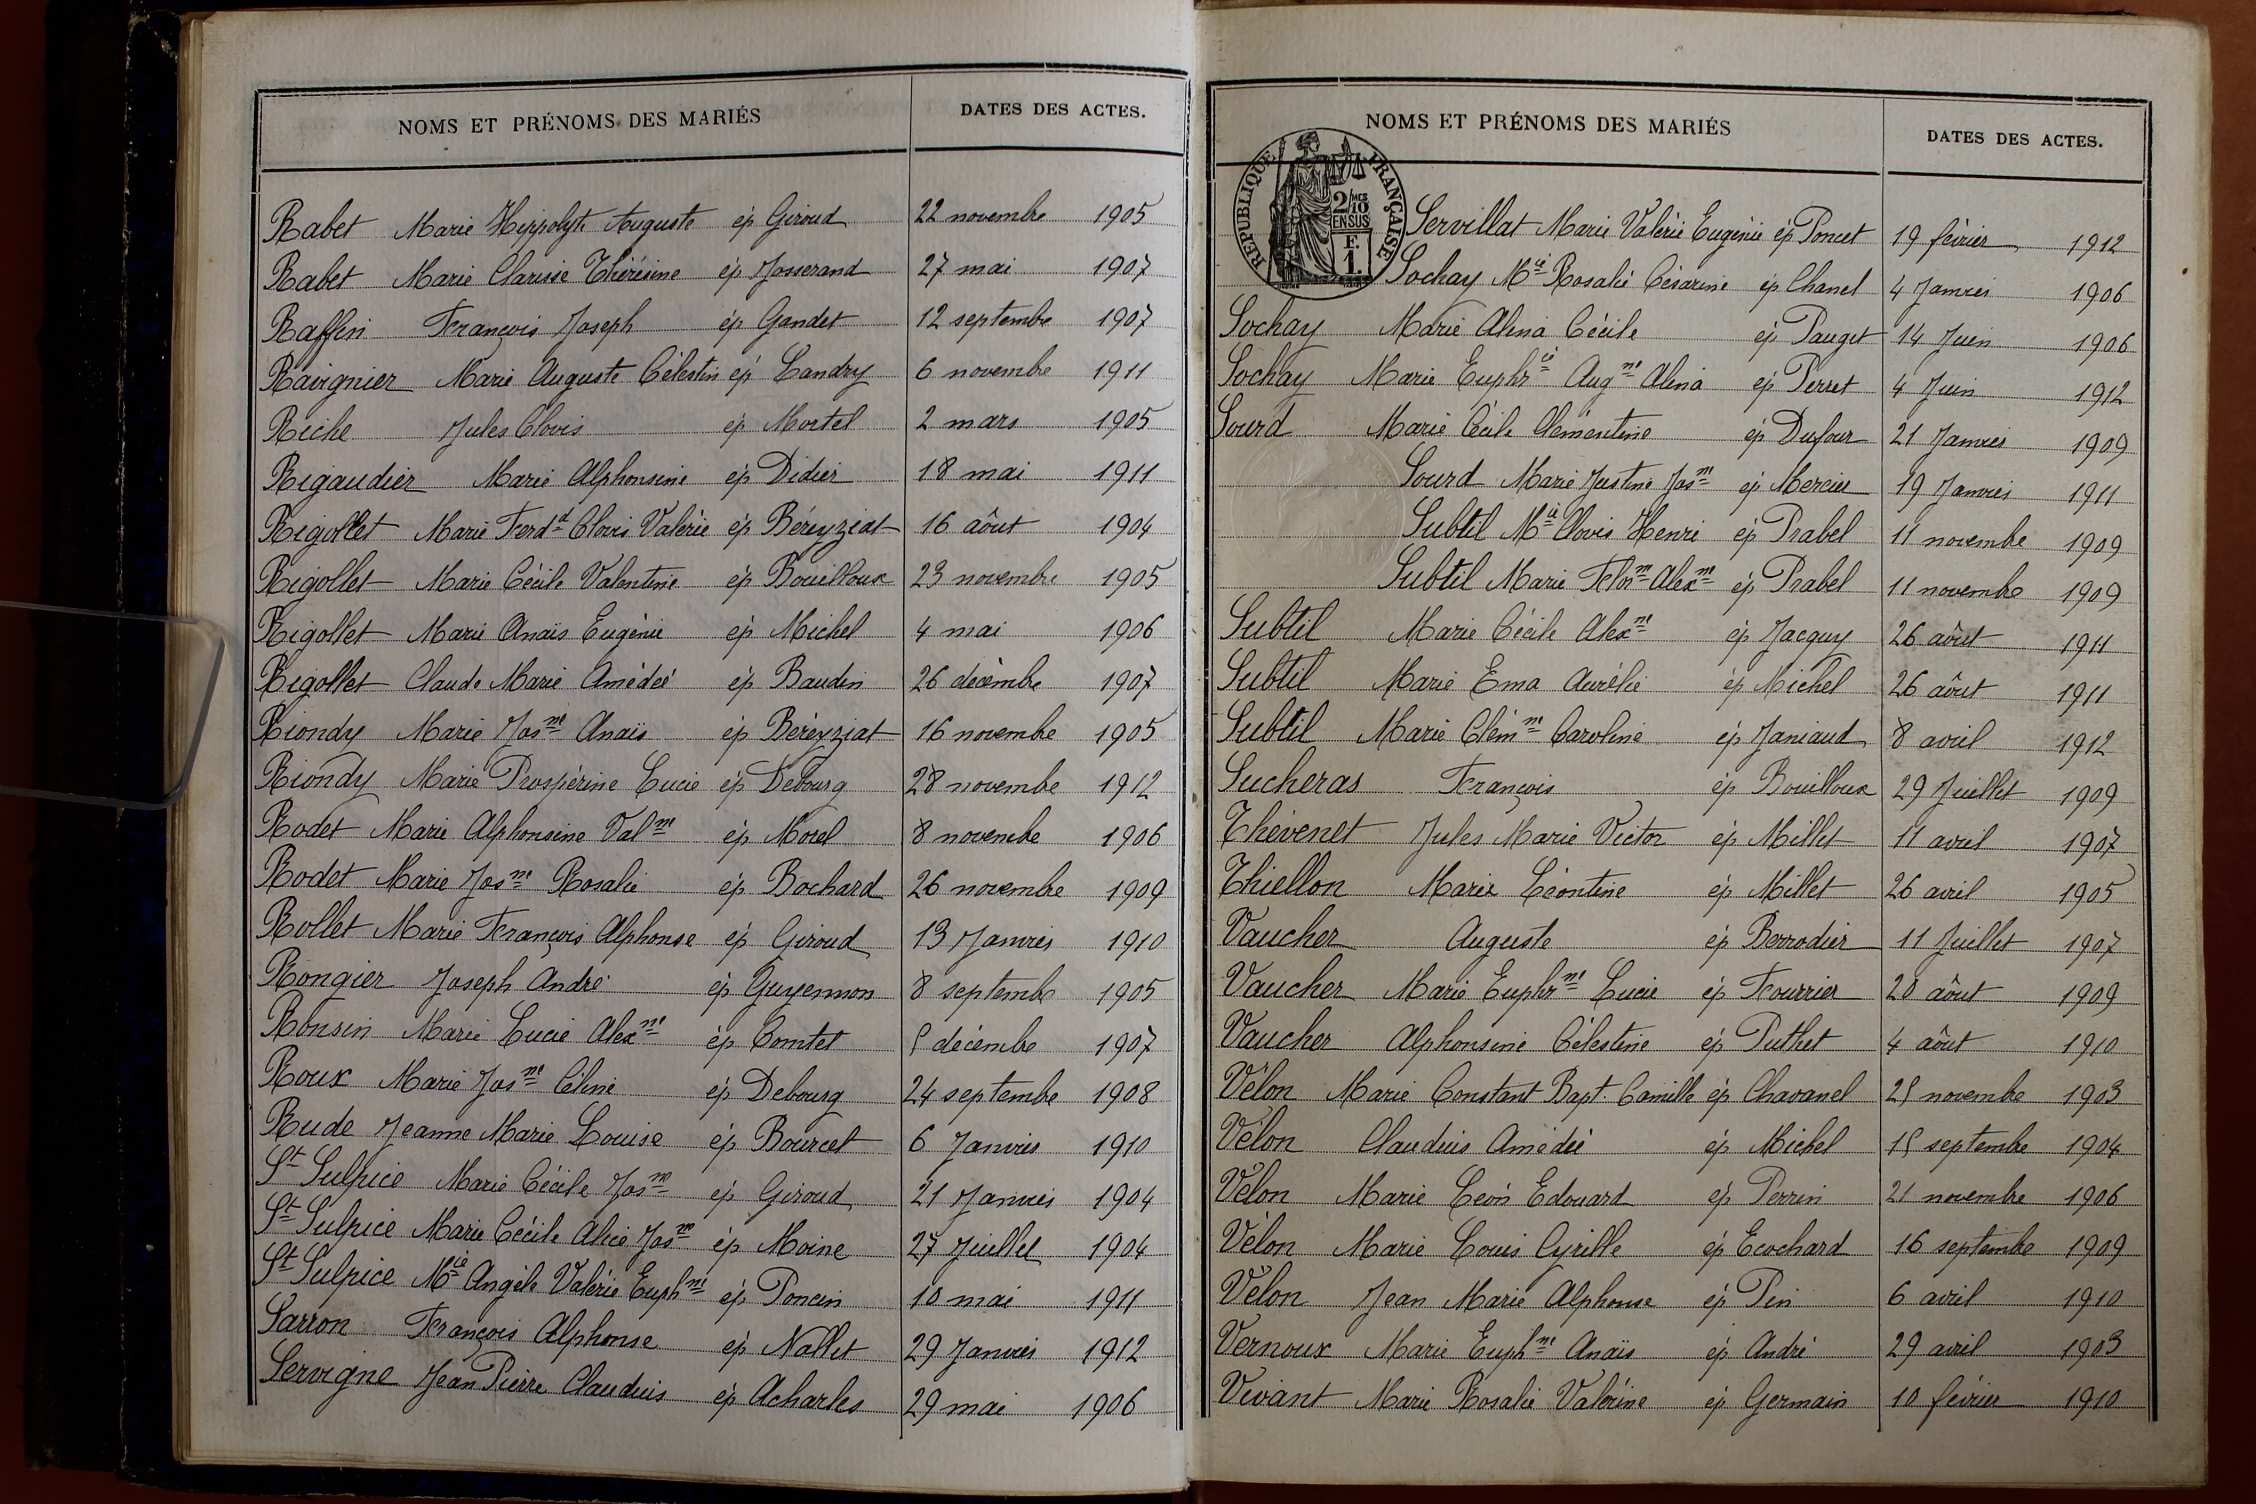 NOMS ET PRÉNOMS DES MARIÉS DATES DES ACTES.
Rabet Marie Hippolyte Auguste ép Giroud 22 novembre 1905
Rabet Marie Clarisse Thérésine ép Josserand 27 mai 1907
Raffin François Joseph ép Gandet 12 septembre 1907
Ravignier Marie Auguste Célestin ép Landry 6 novembre 1911
Riche Jules Clovis ép Mortel 2 mars 1905
Rigaudier Marie Alphonsine ép Didier 18 mai 1911
Rigollet Marie Ferdd Clovis Valérie ép Béreyziat 16 aôut 1904
Rigollet Marie Cécile Valentine ép Bouilloux 23 novembre 1905
Rigollet Marie Anaïs Eugénie ép Michel 4 mai 1906
Rigollet Claude Marie Amédeé ép Baudin 26 décembre 1907
Riondy Marie Josne Anaïs ép Béreyziat 16 novembre 1905
Riondy Marie Prospérine Lucie ép Debourg 28 novembre 1912
Rodet Marie Alphonsine Valne ép Morel 8 novembre 1906
Rodet Marie Josne Rosalie ép Bochard 26 novembre 1909
Rollet Marie François Alphonse ép Giroud 13 Janvier 1910
Rongier Joseph André ép Guyennon 8 septembre 1905
Ronsin Marie Lucie Alexne ép Comtet 5 décembre 1907
Roux Marie Josne Céline ép Debourg 24 septembre 1908
Rude Jeanne Marie Louise ép Bourcet 6 Janvier 1910
St Sulpice Marie Cécile Josne ép Giroud 21 Janvier 1904
St Sulpice Marie Cécile Alice Josne ép Moine 27 Juillet 1904
St Sulpice Mie Angèle Valérie Euphne ép Poncin 10 mai 1911
Sarron François Alphonse ép Nallet 29 Janvier 1912
Servigne Jean Pierre Claudius ép Acharles 29 mai 1906
NOMS ET PRÉNOMS DES MARIÉS DATES DES ACTES.
RÉPUBLIQUE FRANÇAISE
2/MES
10
EN SUS
F.
1.
Servillat Marie Valérie Eugénie ép Poncet 19 février 1912
Sochay Mie Rosalie Césarine ép Chanel 4 Janvier 1906
Sochay Marie Alina Cécile ép Pauget 14 Juin 1906
Sochay Marie Euphrie Augne Alina ép Perret 4 Juin 1912
Sourd Marie Cécile Clémentine ép Dufour 21 Janvier 1909
Sourd Marie Justine Josne ép Mercier 19 Janvier 1911
Subtil Mie Clovis Henri ép Prabel 11 novembre 1909
Subtil Marie Florne Alexne ép Prabel 11 novembre 1909
Subtil Marie Cécile Alexne ép Jacquy 26 aôut 1911
Subtil Marie Ema Aurélie ép Michel 26 aôut 1911
Subtil Marie Clémne Caroline ép Janiaud 8 avril 1912
Sucheras François ép Bouilloux 29 Juillet 1909
Thévenet Jules Marie Victor ép Millet 11 avril 1907
Thiellon Marie Léontine ép Millet 26 avril 1905
Vaucher Auguste ép Berrodier 11 Juillet 1907
Vaucher Marie Euphrne Lucie ép Fourrier 28 aôut 1909
Vaucher Alphonsine Célestine ép Puthet 4 aôut 1910
Vélon Marie Constant Bapt. Camille ép Chavanel 25 novembre 1903
Vélon Claudius Amédée ép Michel 15 septembre 1904
Vélon Marie Léon Edouard ép Perrin 21 novembre 1906
Vélon Marie Louis Cyrille ép Ecochard 16 septembre 1909
Vélon Jean Marie Alphonse ép Pin 6 avril 1910
Vernoux Marie Euphne Anaïs ép André 29 avril 1903
Vivant Marie Rosalie Valérine ép Germain 10 février 1910